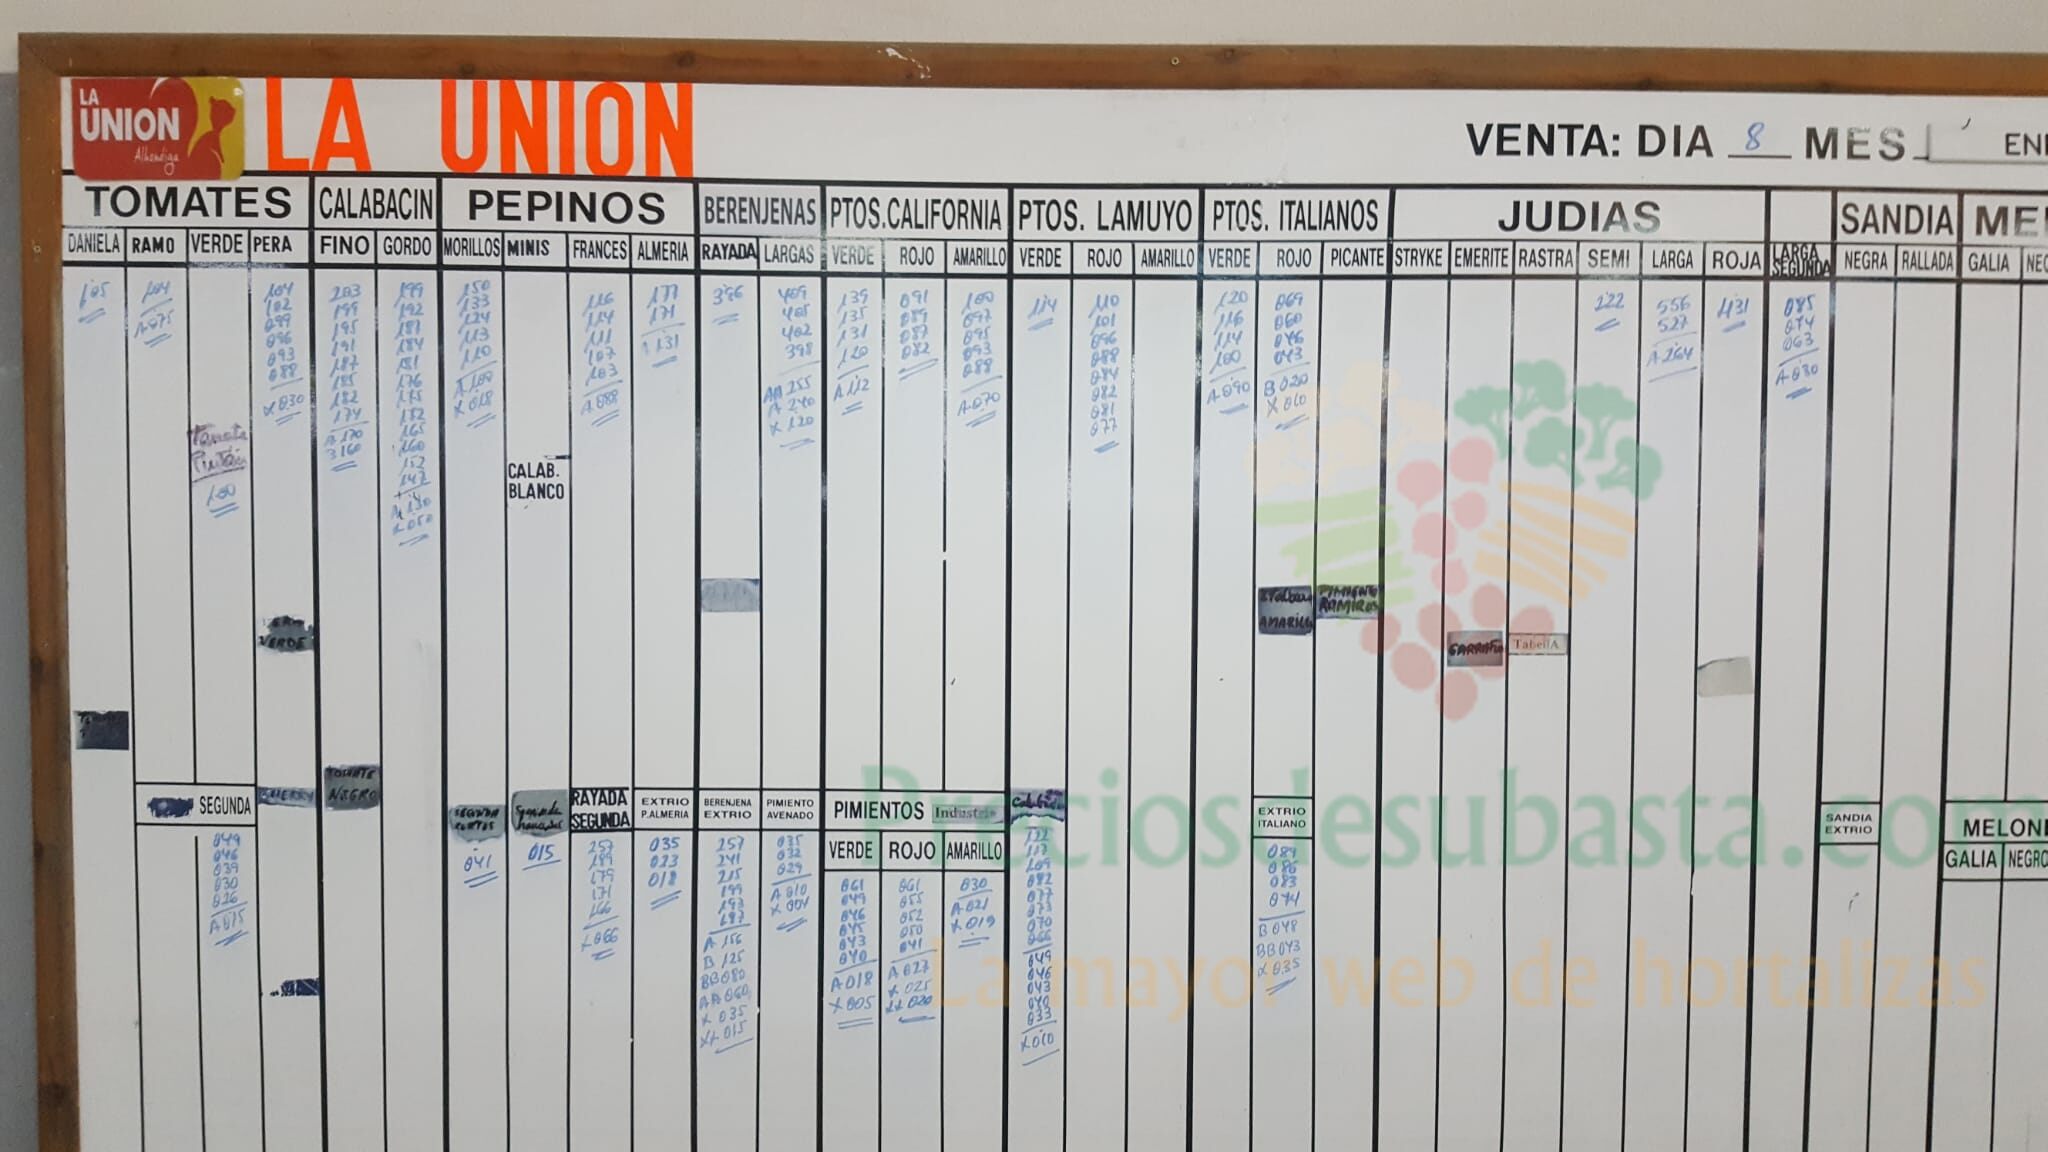 LA
UNION
Alhóndiga
LA UNION
VENTA: DIA 8 MES
TOMATES CALABACIN PEPINOS BERENJENAS PTOS.CALIFORNIA PTOS. LAMUYO PTOS. ITALIANOS JUDIAS SANDIA
DANIELA RAMO VERDE PERA FINO GORDO MORILLOS MINIS FRANCES ALMERIA RAYADA LARGAS VERDE ROJO AMARILLO VERDE ROJO AMARILLO VERDE ROJO PICANTE STRYKE EMERITE RASTRA SEMI LARGA ROJA LARGA SEGUNDA NEGRA RALLADA GALIA
105
104
A 075
Tomate
100
104
102
099
096
093
088
X 030
203
199
195
191
187
185
182
174
A 170
199
192
187
184
181
176
175
165
160
152
147
A 130
X 050
150
133
124
113
110
A 100
X 018
CALAB.
BLANCO
116
114
111
107
103
A 088
177
171
A 131
396
409
405
402
398
AA 255
A 240
X 120
139
135
131
120
A 112
091
089
087
082
100
097
095
093
088
A 070
114
110
101
096
088
084
082
081
077
120
116
114
100
A 090
069
060
046
043
B 020
X 010
122
556
527
A 264
431
085
074
063
A 030
VERDE
AMARILLO
PIMIENTO
RAMIROS
TabellA
TOMATE
NEGRO
SEGUNDA
049
046
039
030
026
A 015
SEGUNDA
CORTOS
041
Segunda
015
RAYADA
SEGUNDA
257
189
179
171
166
X 066
EXTRIO
P.ALMERIA
035
023
018
BERENJENA
EXTRIO
257
241
215
199
193
187
A 156
B 125
BB 080
AA 060
X 035
XX 015
PIMIENTO
AVENADO
035
032
029
A 010
X 004
PIMIENTOS Industria
VERDE ROJO AMARILLO
061
049
046
045
043
040
A 018
X 005
061
055
052
050
041
A 027
X 025
XX 020
030
A 021
X 019
122
117
109
082
077
073
070
066
049
046
043
040
033
X 010
EXTRIO
ITALIANO
089
086
083
074
B 048
BB 043
X 035
SANDIA
EXTRIO
GALIA NEGRO
Preciosdesubasta.com
La mayor web de hortalizas